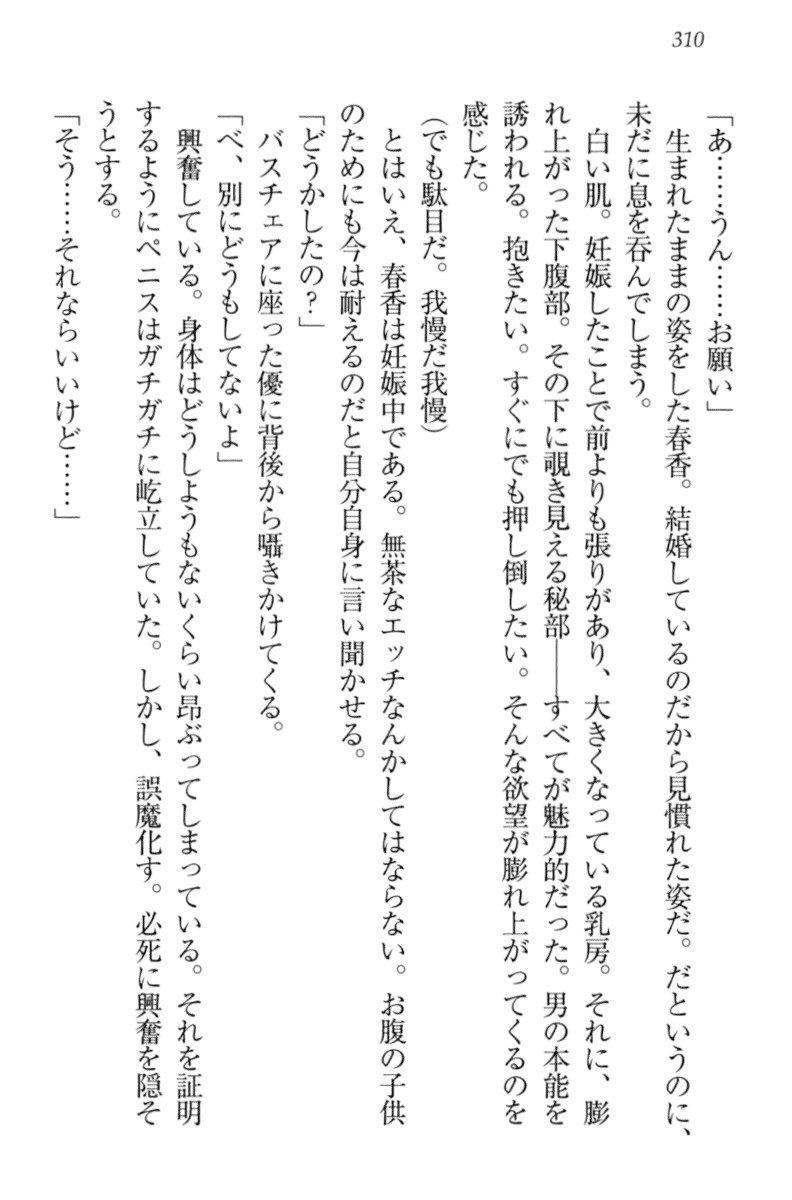 310
「あ……うん……お願い」
　生まれたままの姿をした春香。結婚しているのだから見慣れた姿だ。だというのに、
未だに息を呑んでしまう。
　白い肌。妊娠したことで前よりも張りがあり、大きくなっている乳房。それに、膨
れ上がった下腹部。その下に覗き見える秘部――すべてが魅力的だった。男の本能を
誘われる。抱きたい。すぐにでも押し倒したい。そんな欲望が膨れ上がってくるのを
感じた。
（でも駄目だ。我慢だ我慢）
　とはいえ、春香は妊娠中である。無茶なエッチなんかしてはならない。お腹の子供
のためにも今は耐えるのだと自分自身に言い聞かせる。
「どうかしたの？」
　バスチェアに座った優に背後から囁きかけてくる。
「べ、別にどうもしてないよ」
　興奮している。身体はどうしようもないくらい昂ぶってしまっている。それを証明
するようにペニスはガチガチに屹立していた。しかし、誤魔化す。必死に興奮を隠そ
うとする。
「そう……それならいいけど……」